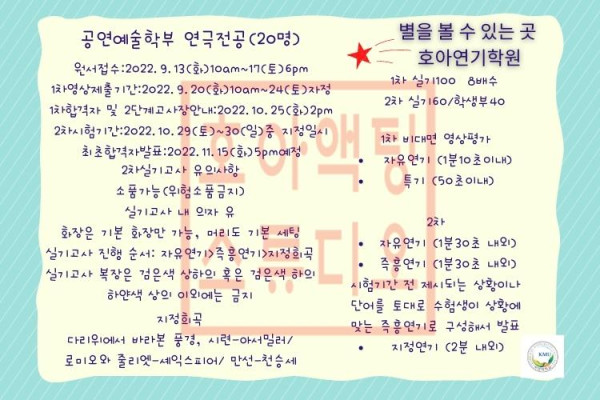 공연예술학부 연극전공(20명)
원서접수:2022. 9.13(화)10am~17(토)6pm
1차영상제출기간:2022. 9.20(화)10am~24(토)자정
1차합격자 및 2단계고사장안내:2022. 10.25(화)2pm
2차시험기간:2022. 10.29(토)~30(일)중 지정일시
최초합격자발표:2022. 11.15(화)5pm예정
2차실기고사 유의사항
소품가능(위험소품금지)
실기고사 내 의자 유
화장은 기본 화장만 가능, 머리도 기본 세팅
실기고사 진행 순서: 자유연기>즉흥연기>지정희곡
실기고사 복장은 검은색 상하의 혹은 검은색 하의
하얀색 상의 이외에는 금지
지정희곡
다리위에서 바라본 풍경, 시련-아서밀러/
로미오와 줄리엣-셰익스피어/ 만선-천승세
별을 볼 수 있는 곳
호아연기학원
1차 실기100 8배수
2차 실기60/학생부40
1차 비대면 영상평가
• 자유연기 (1분10초이내)
• 특기 (50초이내)
2차
• 자유연기 (1분30초 내외)
• 즉흥연기 (1분30초 내외)
시험기간 전 제시되는 상황이나
단어를 토대로 수험생이 상황에
맞는 즉흥연기로 구성해서 발표
• 지정연기 (2분 내외)
호아액팅
스튜디오
KMU